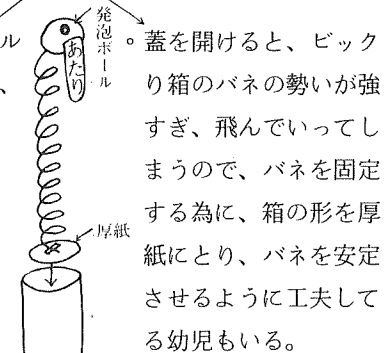 ル
、
発泡ボール
あたり
厚紙
。蓋を開けると、ビック
り箱のバネの勢いが強
すぎ、飛んでいってし
まうので、バネを固定
する為に、箱の形を厚
紙にとり、バネを安定
させるように工夫して
る幼児もいる。